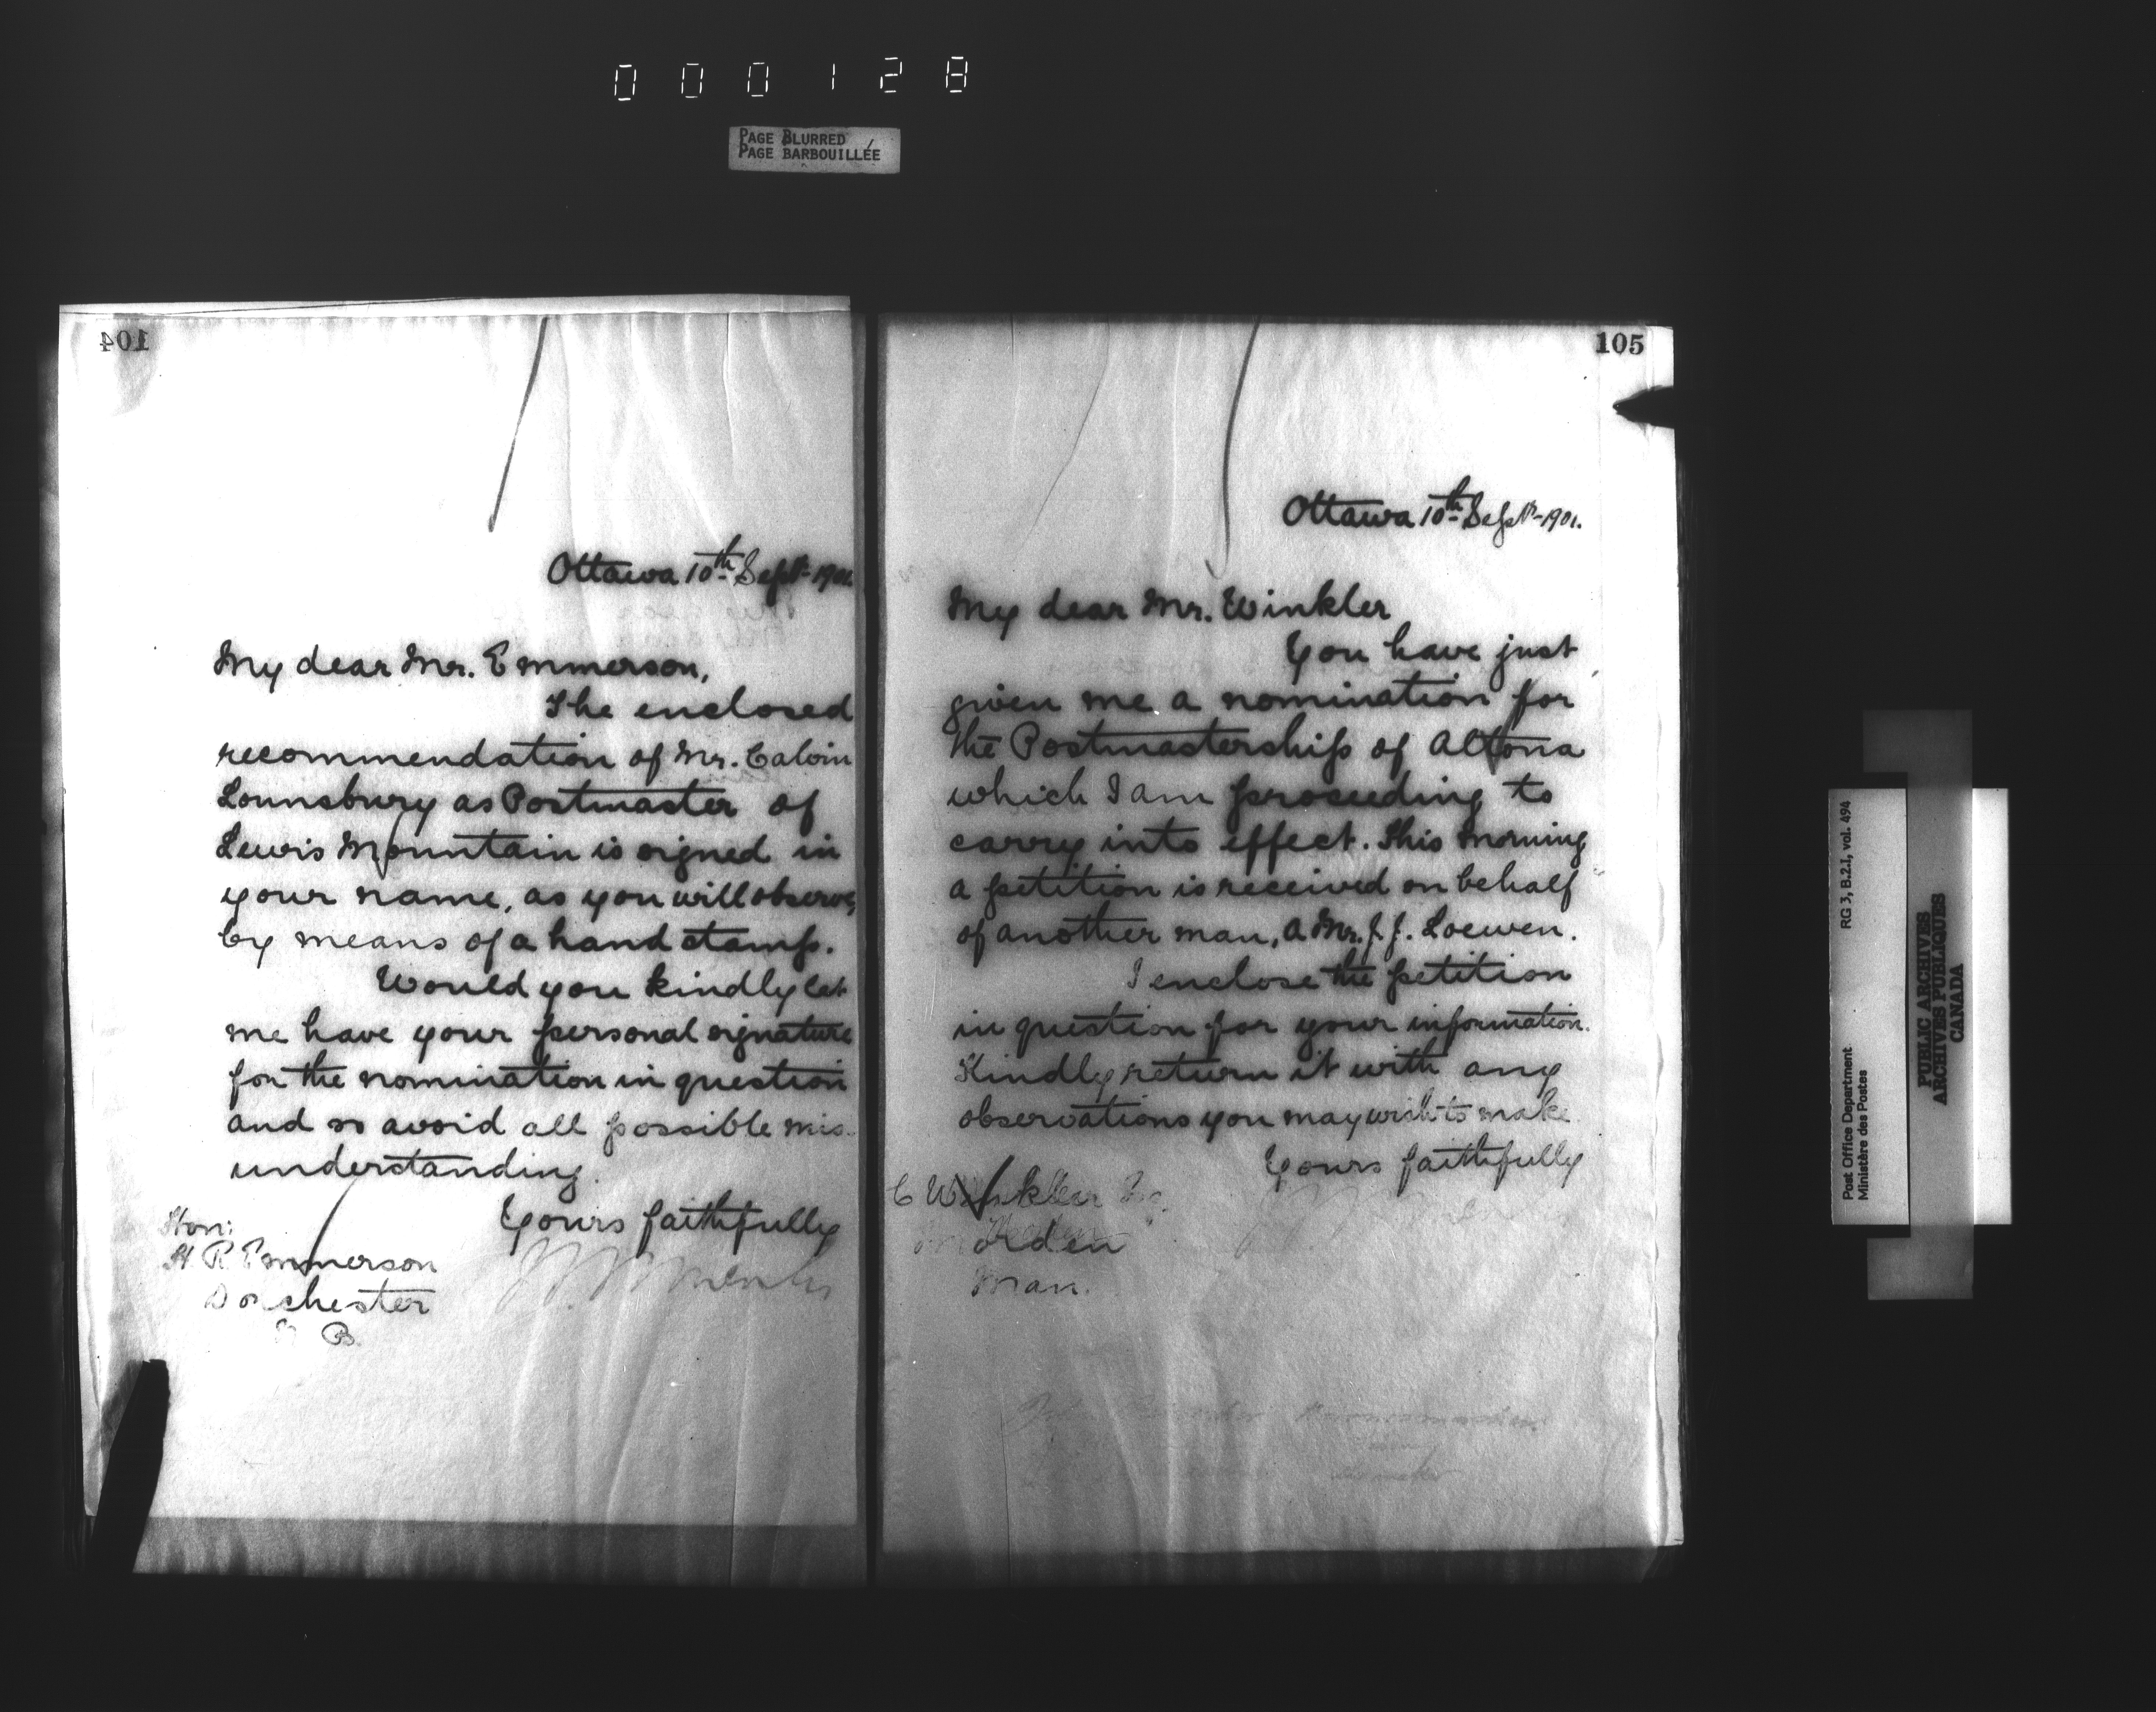 000128
PAGE BLURRED
PAGE BARBOUILLÉE
104
Ottawa 10th Sept 1901
My dear Mr. Emmerson,
The enclosed
recommendation of Mr. Calvin
Lounsbury as Postmaster of
Lewis Mountain is signed in
your name, as you will observe,
by means of a hand stamp.
Would you kindly let
me have your personal signature
for the nomination in question
and so avoid all possible mis-
understanding.
Yours faithfully
Hon:
H R Emmerson
Dorchester
N B.
105
Ottawa 10th Sept-1901.
My dear Mr. Winkler
You have just
given me a nomination for
the Postmastership of Altona
which I am proceeding to
carry into effect. This morning
a petition is received on behalf
of another man, a Mr. J. J. Loewen.
I enclose the petition
in question for your information.
Kindly return it with any
observations you may wish to make
Yours faithfully
C Winkler
Morden
Man.
RG 3, B.2.1, vol. 494
Post Office Department
Ministère des Postes
PUBLIC ARCHIVES
ARCHIVES PUBLIQUES
CANADA